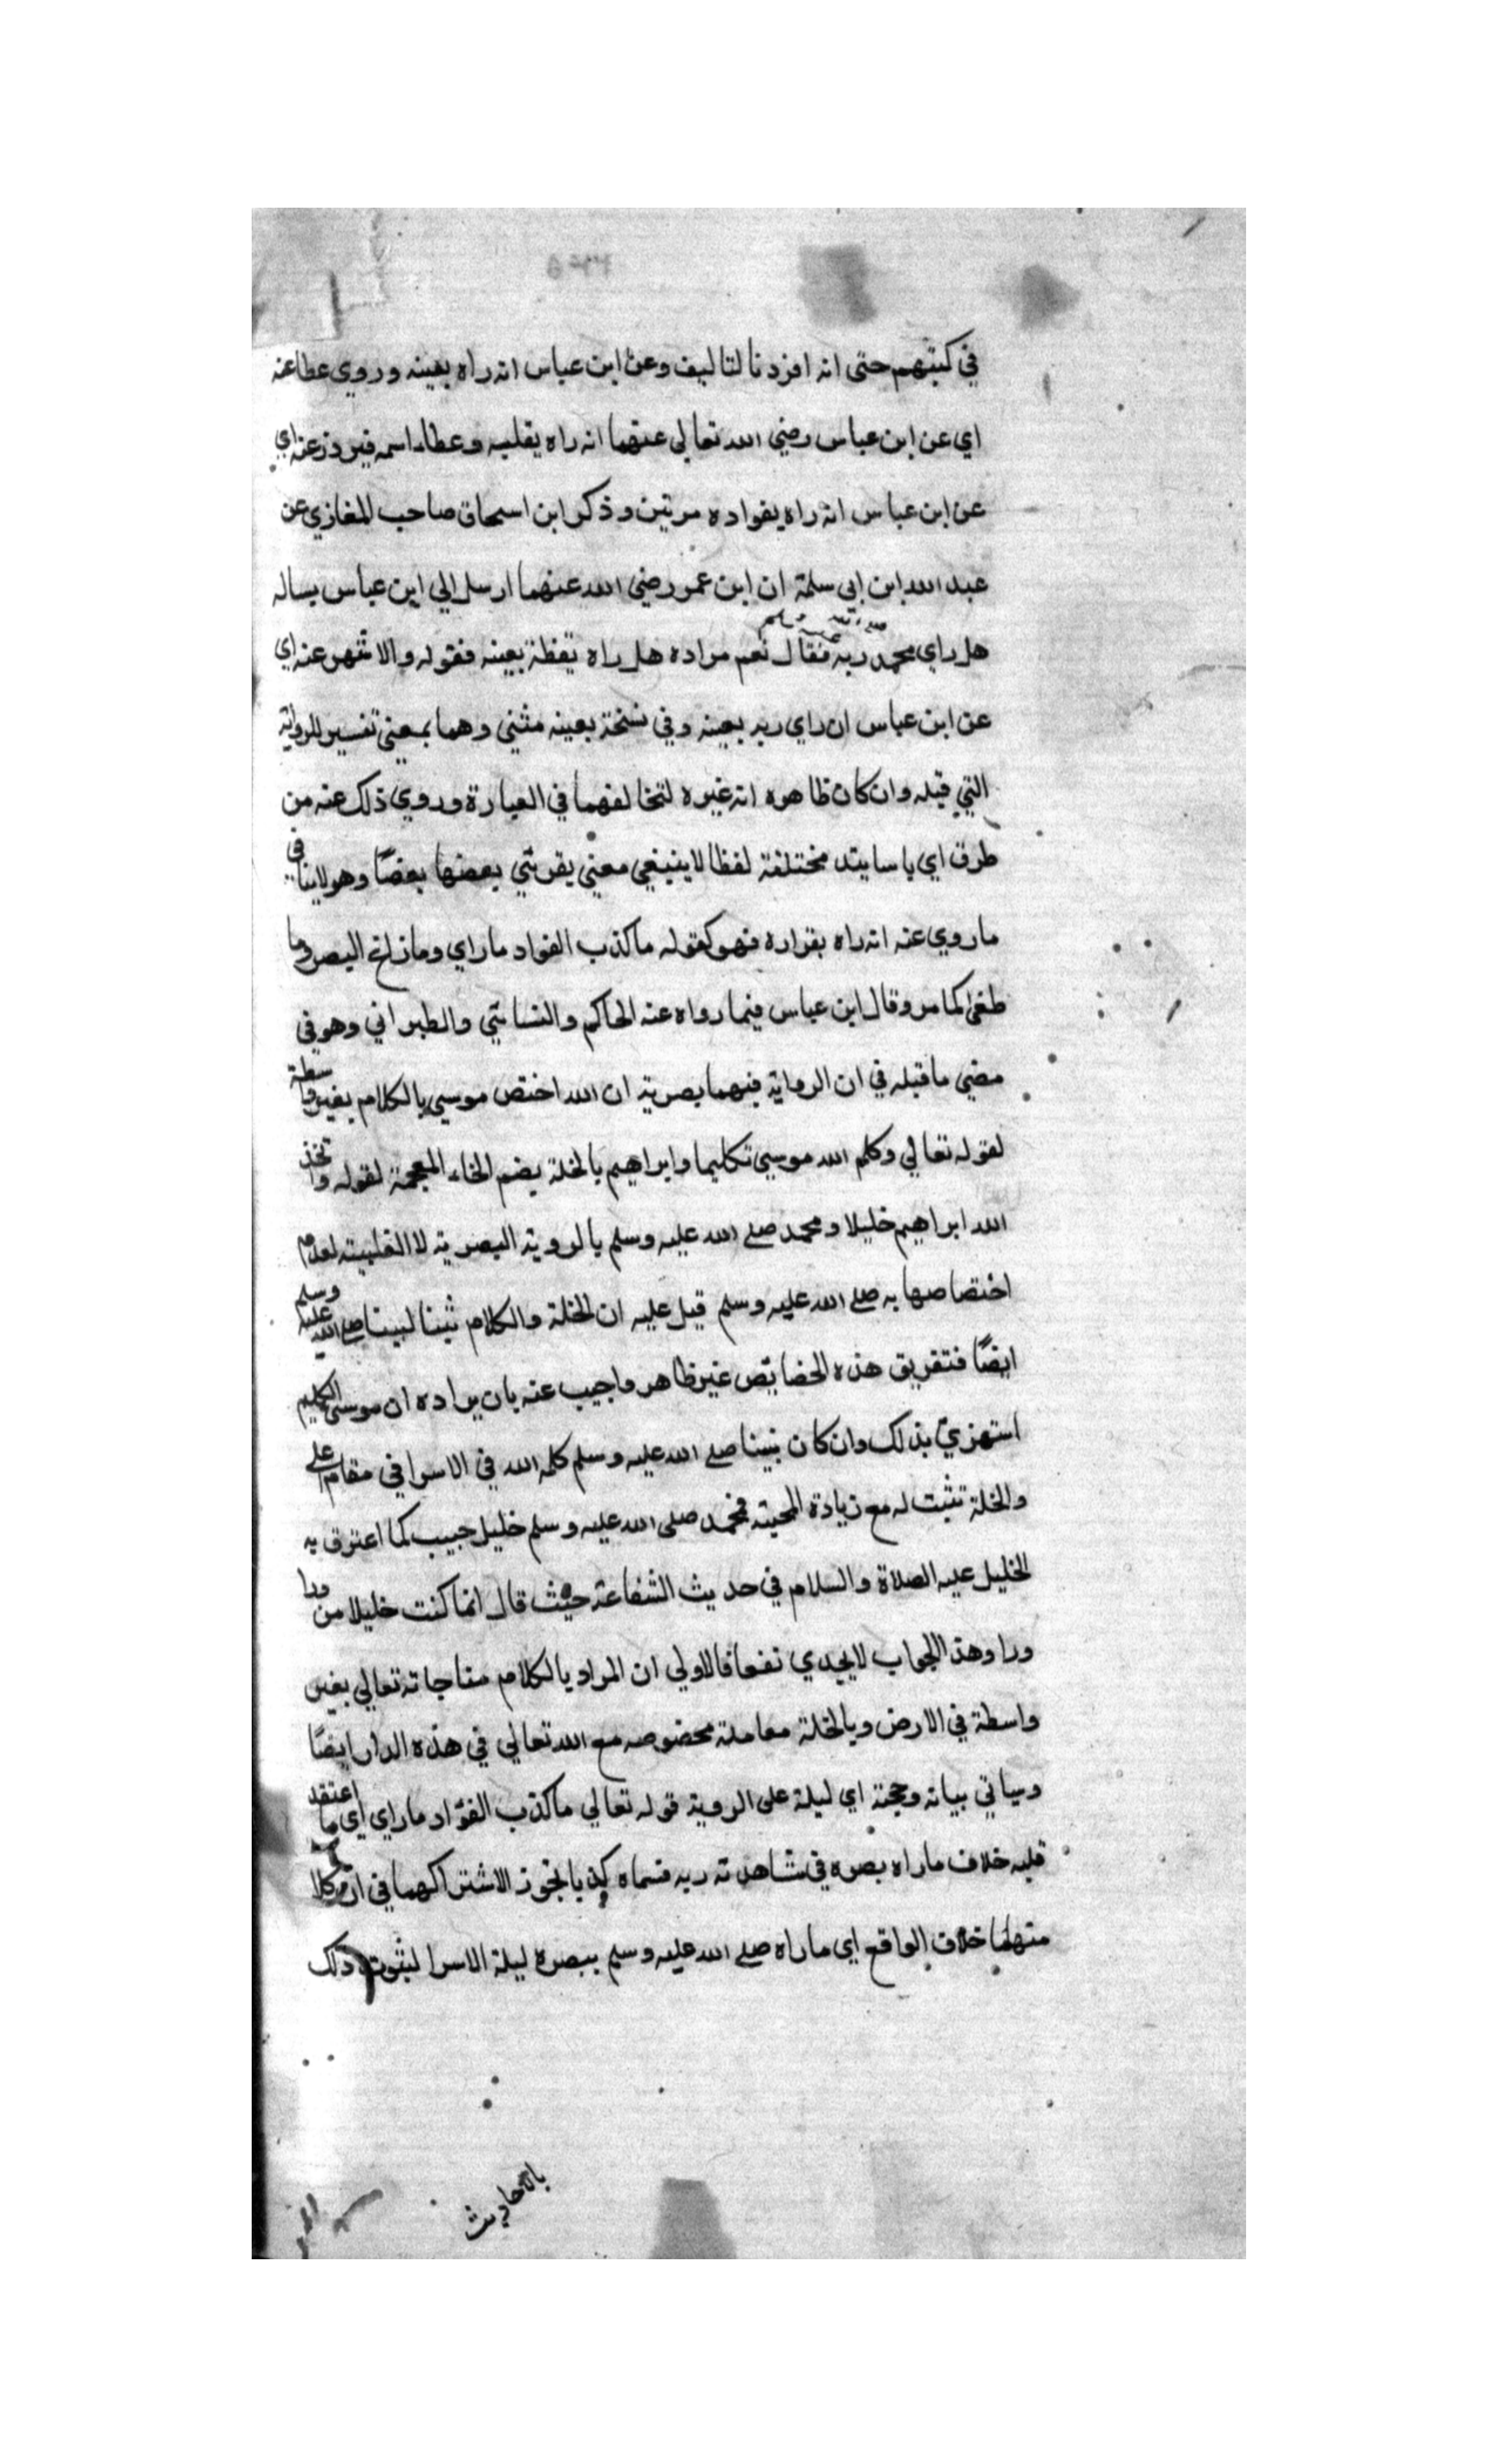 في كتبهم حتى انه افزد نا لتاليف وعن ابن عباس انه راه بعينه وروي عطا عنه
اي عن ابن عباس رضي الله تعالى عنهما انه راه بقلبه وعطاء اسمه فيروز عنه اي
عن ابن عباس انه راه بفواده مرتين وذكر ابن اسحاق صاحب المغازي عن
عبد الله ابن ابي سلمة ان ابن عمر رضي الله عنهما ارسل الي ابن عباس يساله
هل راي محمد صلى الله عليه وسلم ربه فقال نعم مراده هل راه يقظة بعينه فقوله والاشهر عنه اي
عن ابن عباس ان راي ربه بعينه وفي نسخة بعينه مثني وهما بمعني تفسير للرواية
التي قبله وان كان ظاهره انه غيره لتخالفهما في العبارة وروي ذلك عنه من
طرق اي باسايند مختلفة لفظا لا ينبغي معني يقرتي بعضها بعضًا وهو لا ينافي
ما روي عنه انه راه بفواده فهو كقوله ما كذب الفواد ما راي وما زاغ البصر وما
طغي كما مر وقال ابن عباس فيما رواه عنه الحاكم والنسائي والطبراني وهو في
مضي ما قبله في ان الرواية فيهما بصرية ان الله اختص موسي بالكلام بغير واسطة
لقوله تعالي وكلم الله موسي تكليما وابراهيم بالخلة بضم الخاء المعجمة لقوله واتخذ
الله ابراهيم خليلا ومحمد صلى الله عليه وسلم بالروية البصرية لا القلبيته لعدم
اختصاصها به صلى الله عليه وسلم قيل عليه ان الخلة والكلام ثبنا لبينا صلى الله عليه وسلم
ايضًا فتفريق هذه الخصايص غير ظاهر واجيب عنه بان مراده ان موسي الكليم
استهزئ بذلك وان كان نبينا صلى الله عليه وسلم كلمه الله في الاسرا في مقام اعلي
والخلة تثبت له مع زيادة المحبته فمحمد صلى الله عليه وسلم خليل حبيب كما اعترف به
الخليل عليه الصلاة والسلام في حديث الشفاعة حيث قال انما كنت خليلا من ورا
ورا وهذا الجواب لا يجدي نفعا فالاولي ان المراد بالكلام مناجاته تعالي بغير
واسطة في الارض وبالخلة معاملة مخصوصه مع الله تعالي في هذه الدار ايضًا
وسياتي بيانه وحجته اي ليلة على الروية قوله تعالي ما كذب الفؤاد ما راي اي ما اعتقد
قلبه خلاف ما راه بصره في مشاهدته ربه فسماه كذبا تجوز الاشتراكهما في ان كلا
منهما خلاف الواقع اي ما راه صلى الله عليه وسلم ببصره ليلة الاسرا لثبوت ذلك
بالاحاديث